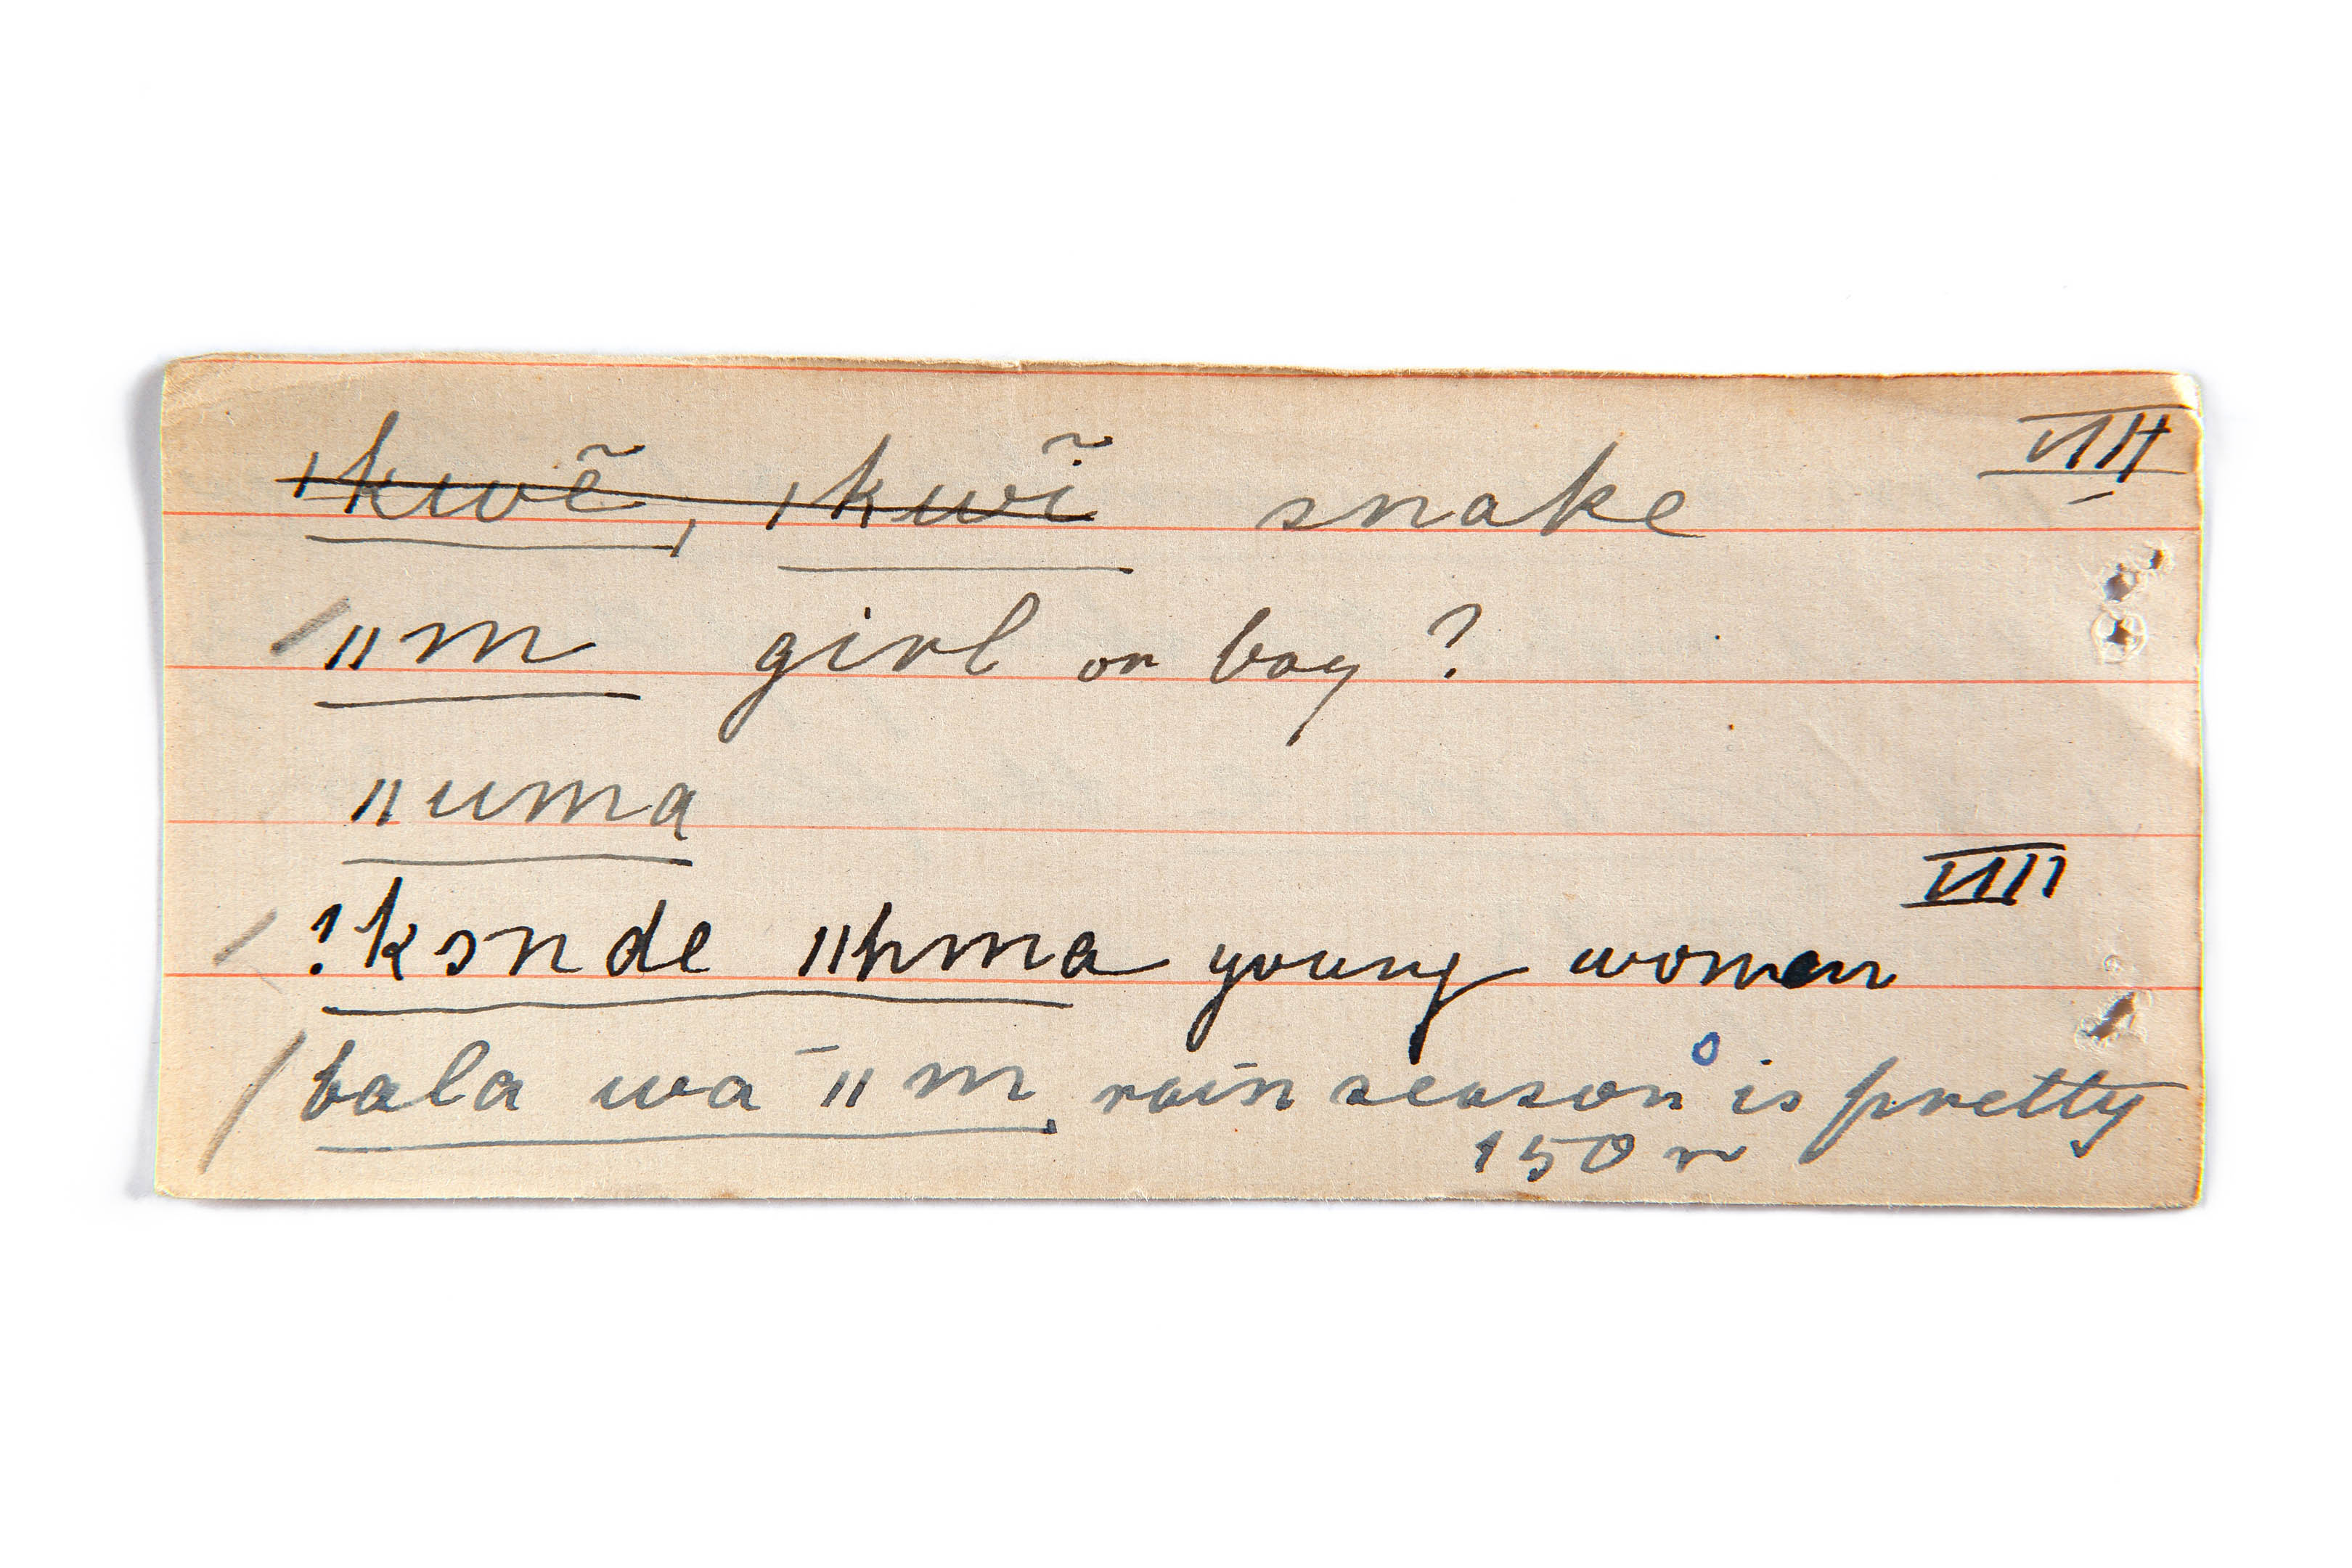 ǀkwẽ, ǀkwĩ snake VIII
ǁm girl or boy?
ǁuma
VIII
!kɔnde ǁhma young woman
bala wa ǁm̄, rain season is pretty
150 r